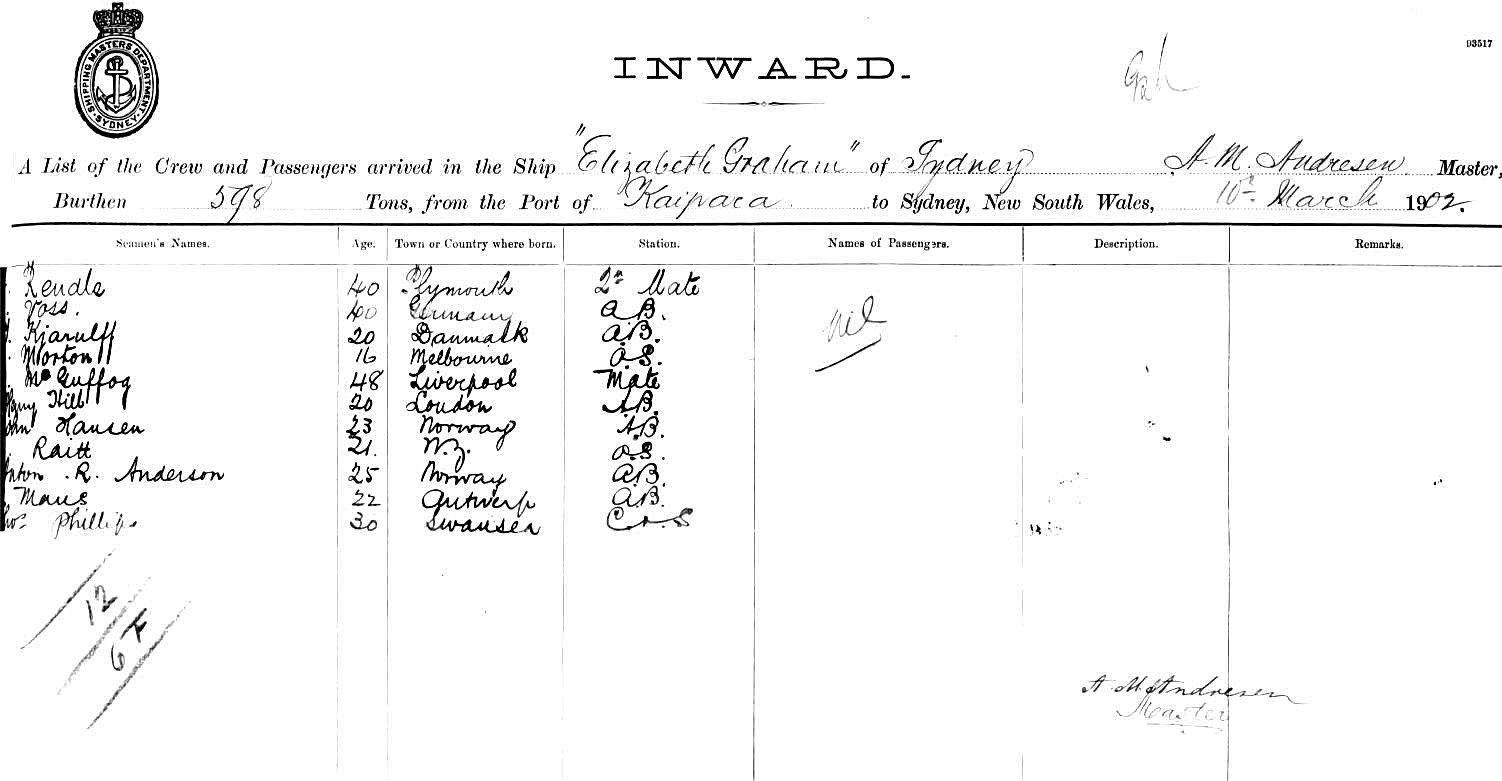 SHIPPING MASTERS DEPARTMENT
SYDNEY
93517
INWARD.
A List of the Crew and Passengers arrived in the Ship "Elizabeth Graham" of Sydney A. M. Andresen Master,
Burthen 598 Tons, from the Port of Kaipara to Sydney, New South Wales, 10th March 1902.
Seamen's Names. Age. Town or Country where born. Station. Names of Passengers. Description. Remarks.
Rendle 40 Plymouth 2nd Mate
Voss. 40 Germany A.B. Nil
Kjarulff 20 Danmark A.B.
Morton 16 Melbourne O.S.
McGuffog 48 Liverpool Mate
Hill 20 London A.B.
Hansen 23 Norway A.B.
Raitt 21. N.Z. O.S.
R. Anderson 25 Norway A.B.
Maus 22 Antwerp A.B.
Phillips 30 Swansea C & S
12
6 F
A. M. Andresen
Master